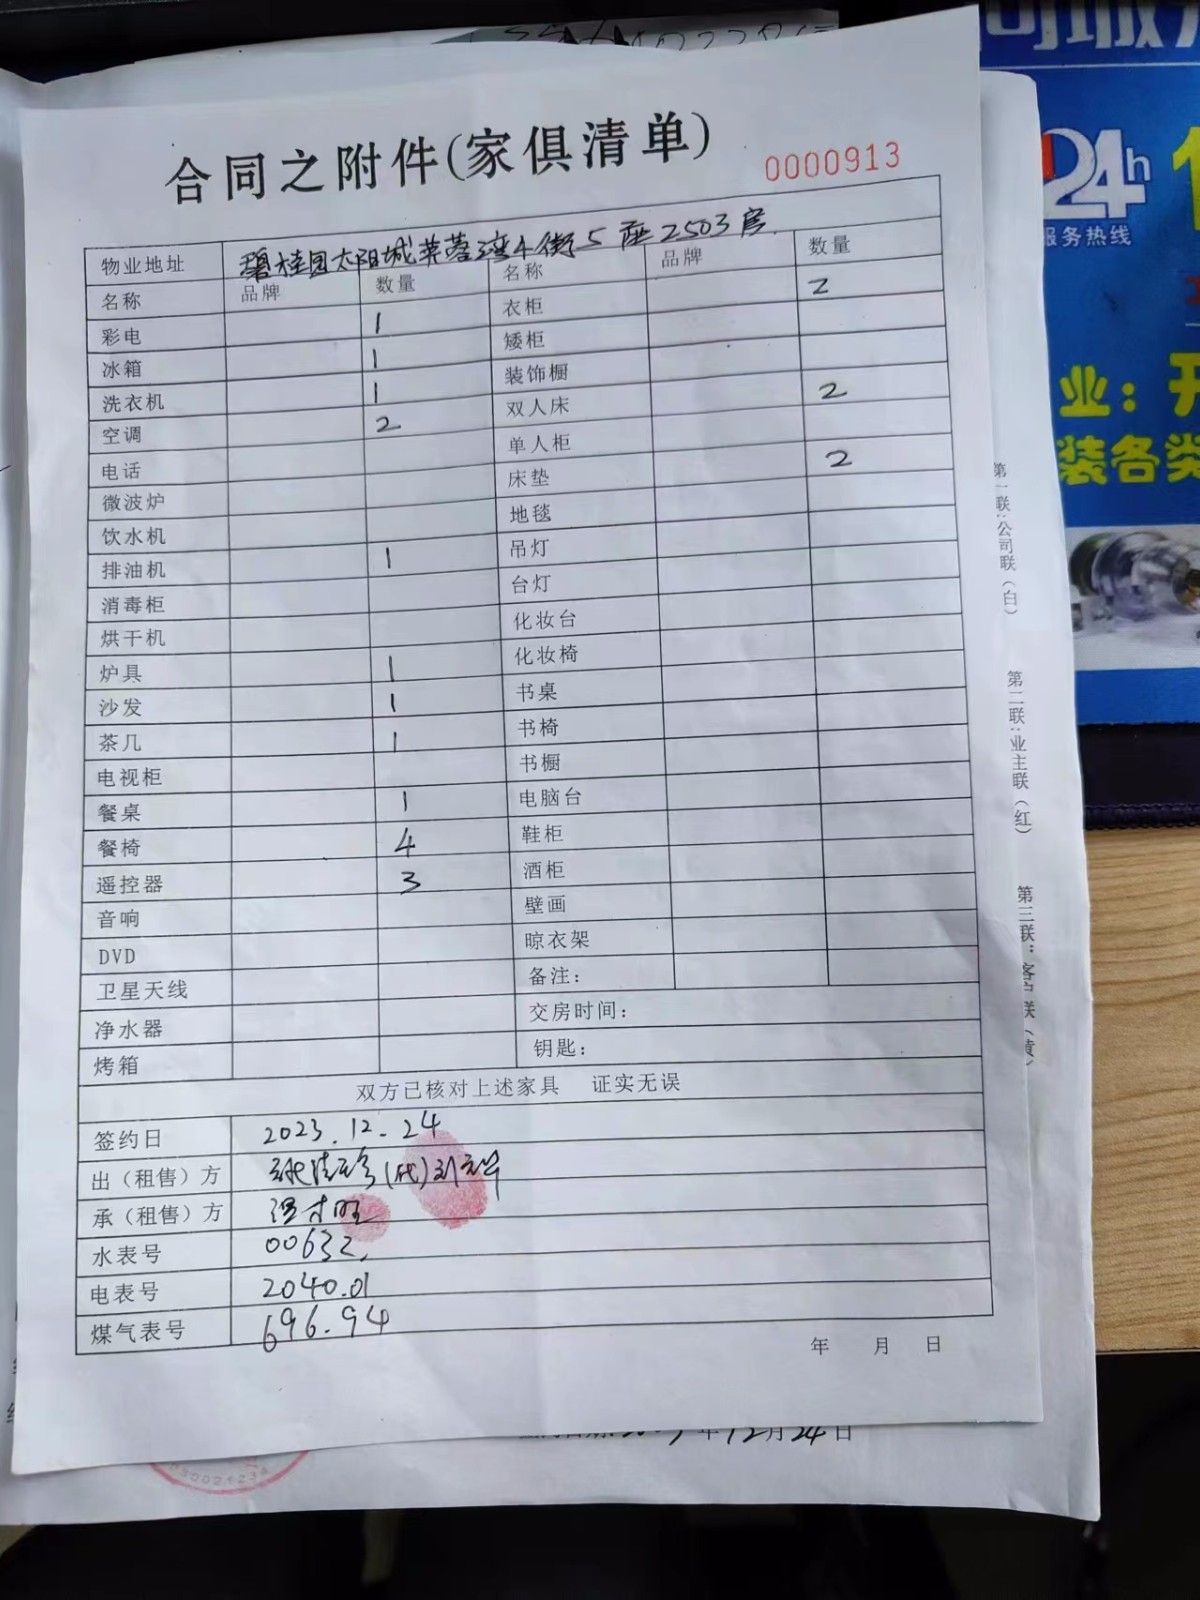 合同之附件(家俱清单)
0000913
物业地址 碧桂园太阳城芙蓉湾4街5座2503房
名称 品牌 数量 名称 品牌 数量
彩电 1 衣柜 2
冰箱 1 矮柜
洗衣机 1 装饰橱
空调 2 双人床 2
电话 单人柜
微波炉 床垫 2
饮水机 地毯
排油机 1 吊灯
消毒柜 台灯
烘干机 化妆台
炉具 1 化妆椅
沙发 1 书桌
茶几 1 书椅
电视柜 书橱
餐桌 1 电脑台
餐椅 4 鞋柜
遥控器 3 酒柜
音响 壁画
DVD 晾衣架
卫星天线 备注:
净水器 交房时间:
烤箱 钥匙:
双方已核对上述家具 证实无误
签约日 2023.12.24
出（租售）方 (代)
承（租售）方
水表号 00632
电表号 2040.01
煤气表号 696.94
年 月 日
第一联:公司联（白）
第二联:业主联（红）
第三联:客户联（黄）
年12月24日
24h
服务热线
业:开
装各类